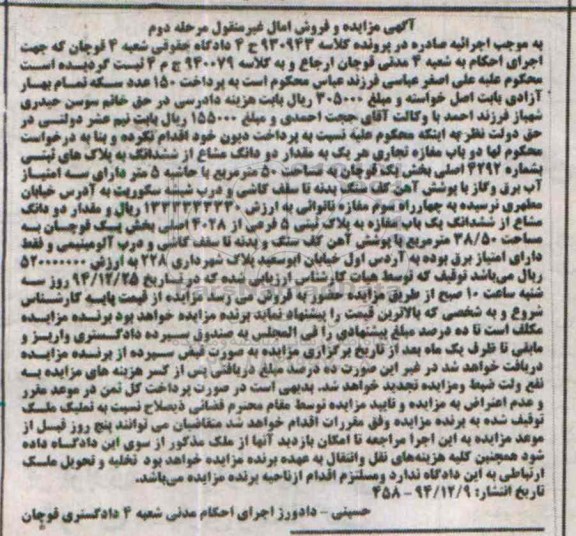 آگهی مزایده و فروش اموال غیرمنقول مرحله دوم
به موجب اجرائیه صادره در پرونده کلاسه ۹۳۰۹۴۳ ح ۴ دادگاه حقوقی شعبه ۴ قوچان که جهت
اجرای احکام به شعبه ۴ مدنی قوچان ارجاع و به کلاسه ۹۴۰۰۷۹ ج م ۴ ثبت گردیده است
محکوم علیه علی اصغر عباسی فرزند عباس محکوم است به پرداخت ۱۵۰ عدد سکه تمام بهار
آزادی بابت اصل خواسته و مبلغ ۳۰۵۰۰۰ ریال بابت هزینه دادرسی در حق خانم سوسن حیدری
شهباز فرزند احمد با وکالت آقای حجت احمدی و مبلغ ۱۵۵۰۰۰ ریال بابت نیم عشر دولتی در
حق دولت نظر به اینکه محکوم علیه نسبت به پرداخت دیون خود اقدام نکرده و بنا به درخواست
محکوم لها دو باب مغازه تجاری هر یک به مقدار دو دانگ مشاع از ششدانگ به پلاک های ثبتی
بشماره ۴۲۹۲ اصلی بخش یک قوچان به مساحت ۵۰ مترمربع با حاشیه ۵ متر دارای سه امتیاز
آب برق وگاز با پوشش آهن کف سنگ بدنه تا سقف کاشی و درب شیشه سکوریت به آدرس خیابان
مطهری نرسیده به چهارراه سوم مغازه نانوائی به ارزش ۱۳۳۳۳۳۳۳۳۰ ریال و مقدار دو دانگ
مشاع از ششدانگ یک باب مغازه به پلاک ثبتی ۵ فرعی از ۴۰۲۸ اصلی بخش یک قوچان به
مساحت ۳۸/۵۰ مترمربع با پوشش آهن کف سنگ و بدنه تا سقف کاشی و درب آلومینیمی و فقط
دارای امتیاز برق بوده به آدرس اول خیابان ابوسعید پلاک شهرداری ۲۲۸ به ارزش ۵۲۰۰۰۰۰۰۰
ریال می‌باشد توقیف که توسط هیات کارشناس ارزیابی شده که در تاریخ ۹۴/۱۲/۲۵ روز سه
شنبه ساعت ۱۰ صبح از طریق مزایده حضور به فروش می رسد مزایده از قیمت پایه کارشناس
شروع و به شخصی که بالاترین قیمت را پیشنهاد نماید برنده مزایده خواهد بود برنده مزایده
مکلف است تا ده درصد مبلغ پیشنهادی را فی المجلس به صندوق سپرده دادگستری واریز و
مابقی تا ظرف یک ماه بعد از تاریخ برگزاری مزایده به صورت فیش سپرده از برنده مزایده
دریافت خواهد شد در غیر این صورت ده درصد مبلغ دریافتی پس از کسر هزینه های مزایده به
نفع ولت ضبط ومزایده تجدید خواهد شد. بدیهی است در صورت پرداخت کل ثمن در موعد مقرر
و عدم اعتراض به مزایده و تایید مزایده توسط مقام محترم قضائی ذیصلاح نسبت به تملیک ملک
توقیف شده به برنده مزایده وفق مقررات اقدام خواهد شد متقاضیان می توانند پنج روز قبل از
موعد مزایده به این اجرا مراجعه تا امکان بازدید آنها از ملک مذکور از سوی این دادگاه داده
شود همچنین کلیه هزینه‌های نقل وانتقال به عهده برنده مزایده خواهد بود تخلیه و تحویل ملک
ارتباطی به این دادگاه ندارد ومستلزم اقدام ازناحیه برنده مزایده می‌باشد.
تاریخ انتشار: ۹۴/۱۲/۹ - ۴۵۸
حسینی - دادورز اجرای احکام مدنی شعبه ۴ دادگستری قوچان